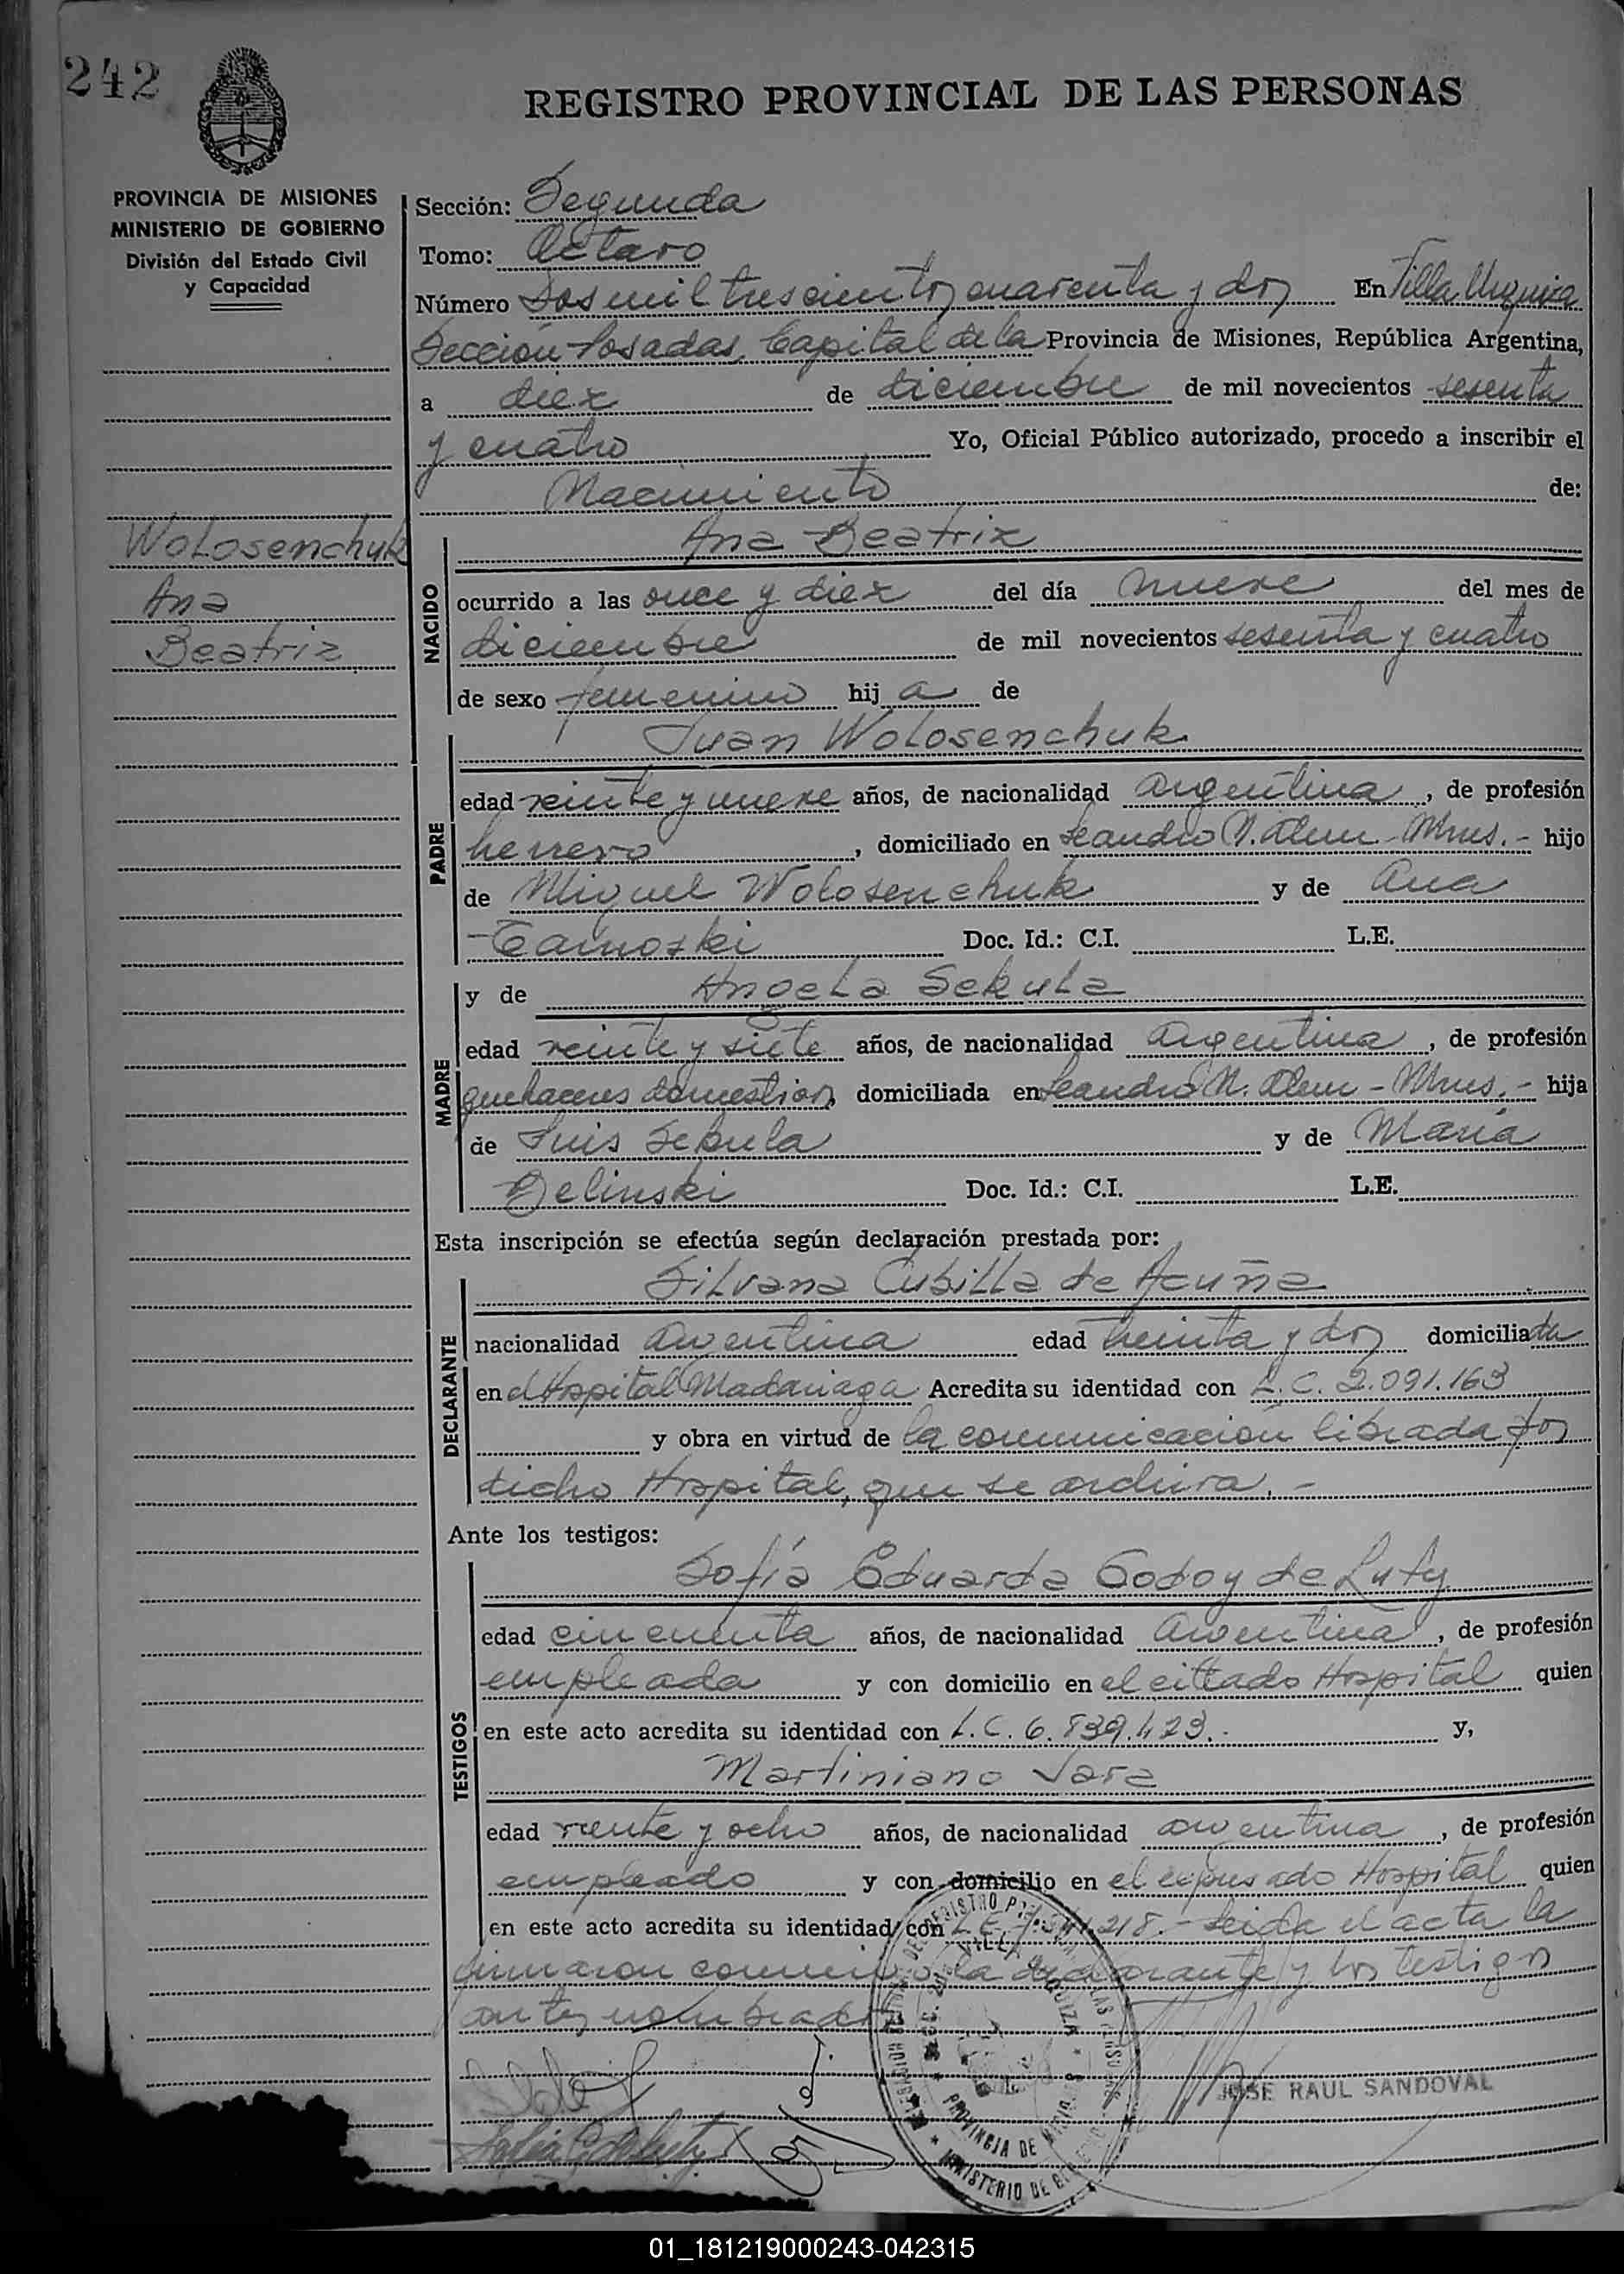 242
REGISTRO PROVINCIAL DE LAS PERSONAS
PROVINCIA DE MISIONES
MINISTERIO DE GOBIERNO
División del Estado Civil
y Capacidad
Wolosenchuk
Ana
Beatriz
Sección: Segunda
Tomo: Octavo
Número Dos mil trescientos cuarenta y dos En Villa Urquiza
Sección Posadas, Capital de la Provincia de Misiones, República Argentina,
a diez de diciembre de mil novecientos sesenta
y cuatro Yo, Oficial Público autorizado, procedo a inscribir el
Nacimiento de:
NACIDO
Ana Beatriz
ocurrido a las once y diez del día nueve del mes de
diciembre de mil novecientos sesenta y cuatro
de sexo femenino hija de
PADRE
Juan Wolosenchuk
edad veinte y nueve años, de nacionalidad argentina, de profesión
herrero, domiciliado en Leandro N. Alem - Mnes. - hijo
de Miguel Wolosenchuk y de Ana
Doc. Id.: C.I. L.E.
MADRE
y de Angela Sekula
edad veinte y siete años, de nacionalidad argentina, de profesión
quehaceres domesticos, domiciliada en Leandro N. Alem - Mnes. - hija
de Luis Sekula y de María
Belinski Doc. Id.: C.I. L.E.
Esta inscripción se efectúa según declaración prestada por:
DECLARANTE
Silvana Cubilla de Acuña
nacionalidad argentina edad treinta y dos domiciliada
en el Hospital Madariaga Acredita su identidad con L.C. 2.091.163
y obra en virtud de la comunicación librada por
dicho Hospital, que se archiva. -
Ante los testigos:
TESTIGOS
Sofía Eduarda Godoy de Luty
edad cincuenta años, de nacionalidad argentina, de profesión
empleada y con domicilio en el citado Hospital quien
en este acto acredita su identidad con L.C. 6.839.423.- y,
Martiniano Vara
edad veinte y ocho años, de nacionalidad argentina, de profesión
empleado y con domicilio en el expresado Hospital quien
en este acto acredita su identidad con L.E. 218.- Leida el acta la
firmaron conmigo la declarante y los testigos
antes nombrados
JOSE RAUL SANDOVAL
PROVINCIA DE MISIONES
MINISTERIO DE
01_181219000243-042315